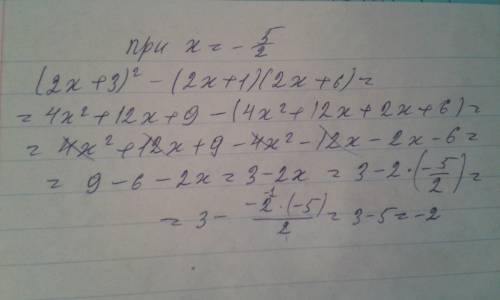 при x = - 5/2
(2x+3)² - (2x+1)(2x+6) =
= 4x² + 12x + 9 - (4x² + 12x + 2x + 6) =
= 4x² + 12x + 9 - 4x² - 12x - 2x - 6 =
= 9 - 6 - 2x = 3 - 2x = 3 - 2 · (- 5/2) =
= 3 - -2¹ · (-5)/2 = 3 - 5 = -2